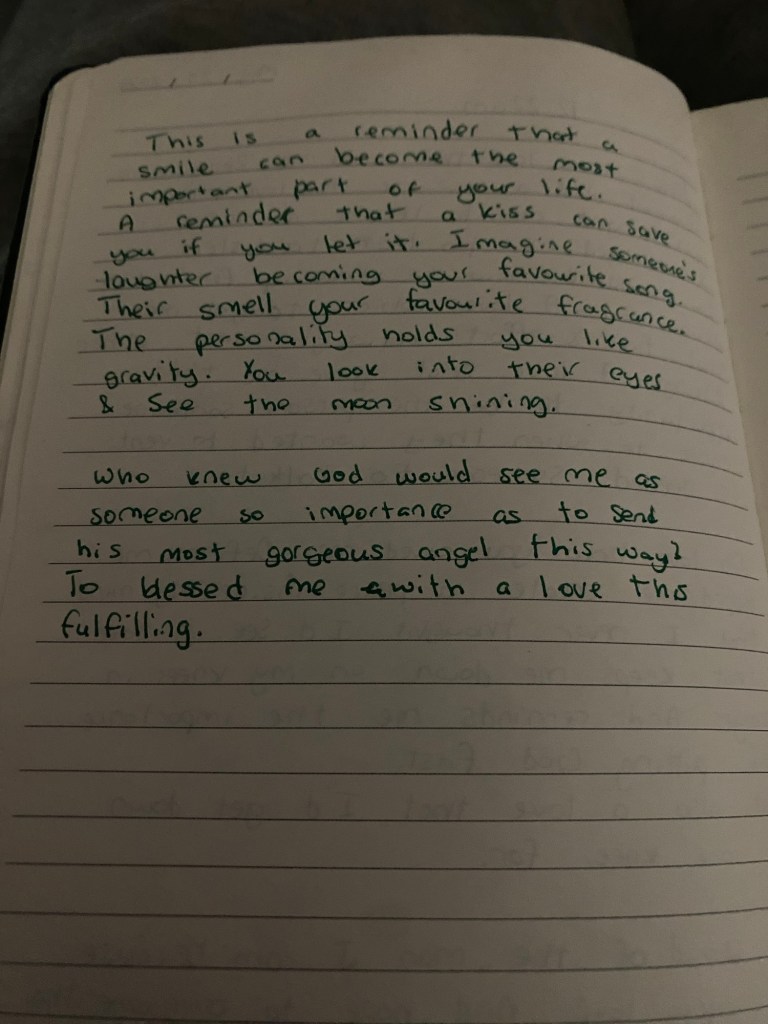 This is a reminder that a
smile can become the most
important part of your life.
A reminder that a kiss can save
you if you let it. Imagine someone's
laughter becoming your favourite song.
Their smell your favourite fragrance.
The personality holds you like
gravity. You look into their eyes
& see the moon shining.
Who knew God would see me as
someone so importance as to send
his most gorgeous angel this way?
To blessed me with a love this
fulfilling.